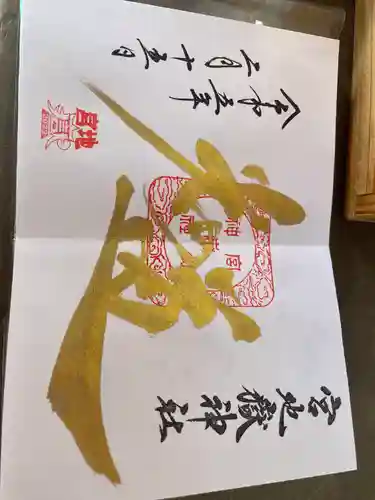 宮地嶽神社
宮地嶽神社
令和五年
三月十五日
宮地